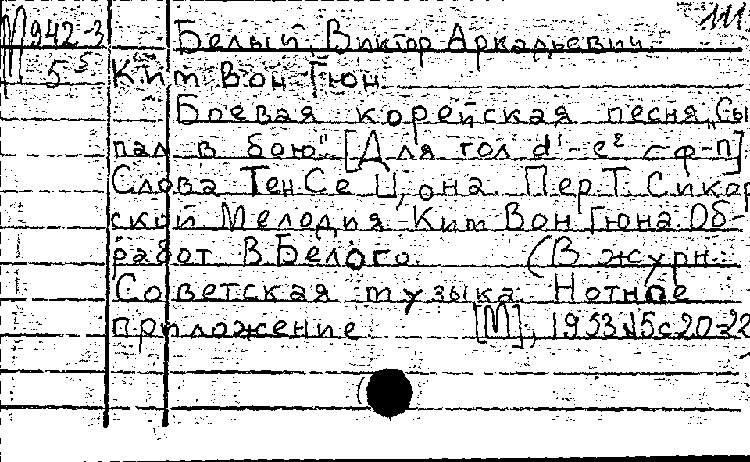 111.
М942-3 Белый, Виктор Аркадьевич.
5 5 Ким Вон Гюн.
Боевая корейская песня „Сы
пал в бою" [Для гол d¹-e² с ф-п]
Слова Тен Се Цона. Пер. Т. Сикор
ской Мелодия Ким Вон Гюна. Об-
работ В. Белого. (В журн.
Советская музыка. Нотное
приложение [М], 1953 №5 с 20-22